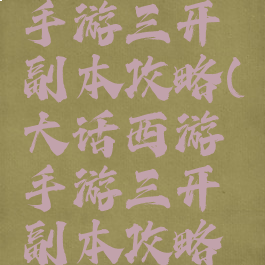 手游三开
副本攻略(
大话西游
手游三开
副本攻略